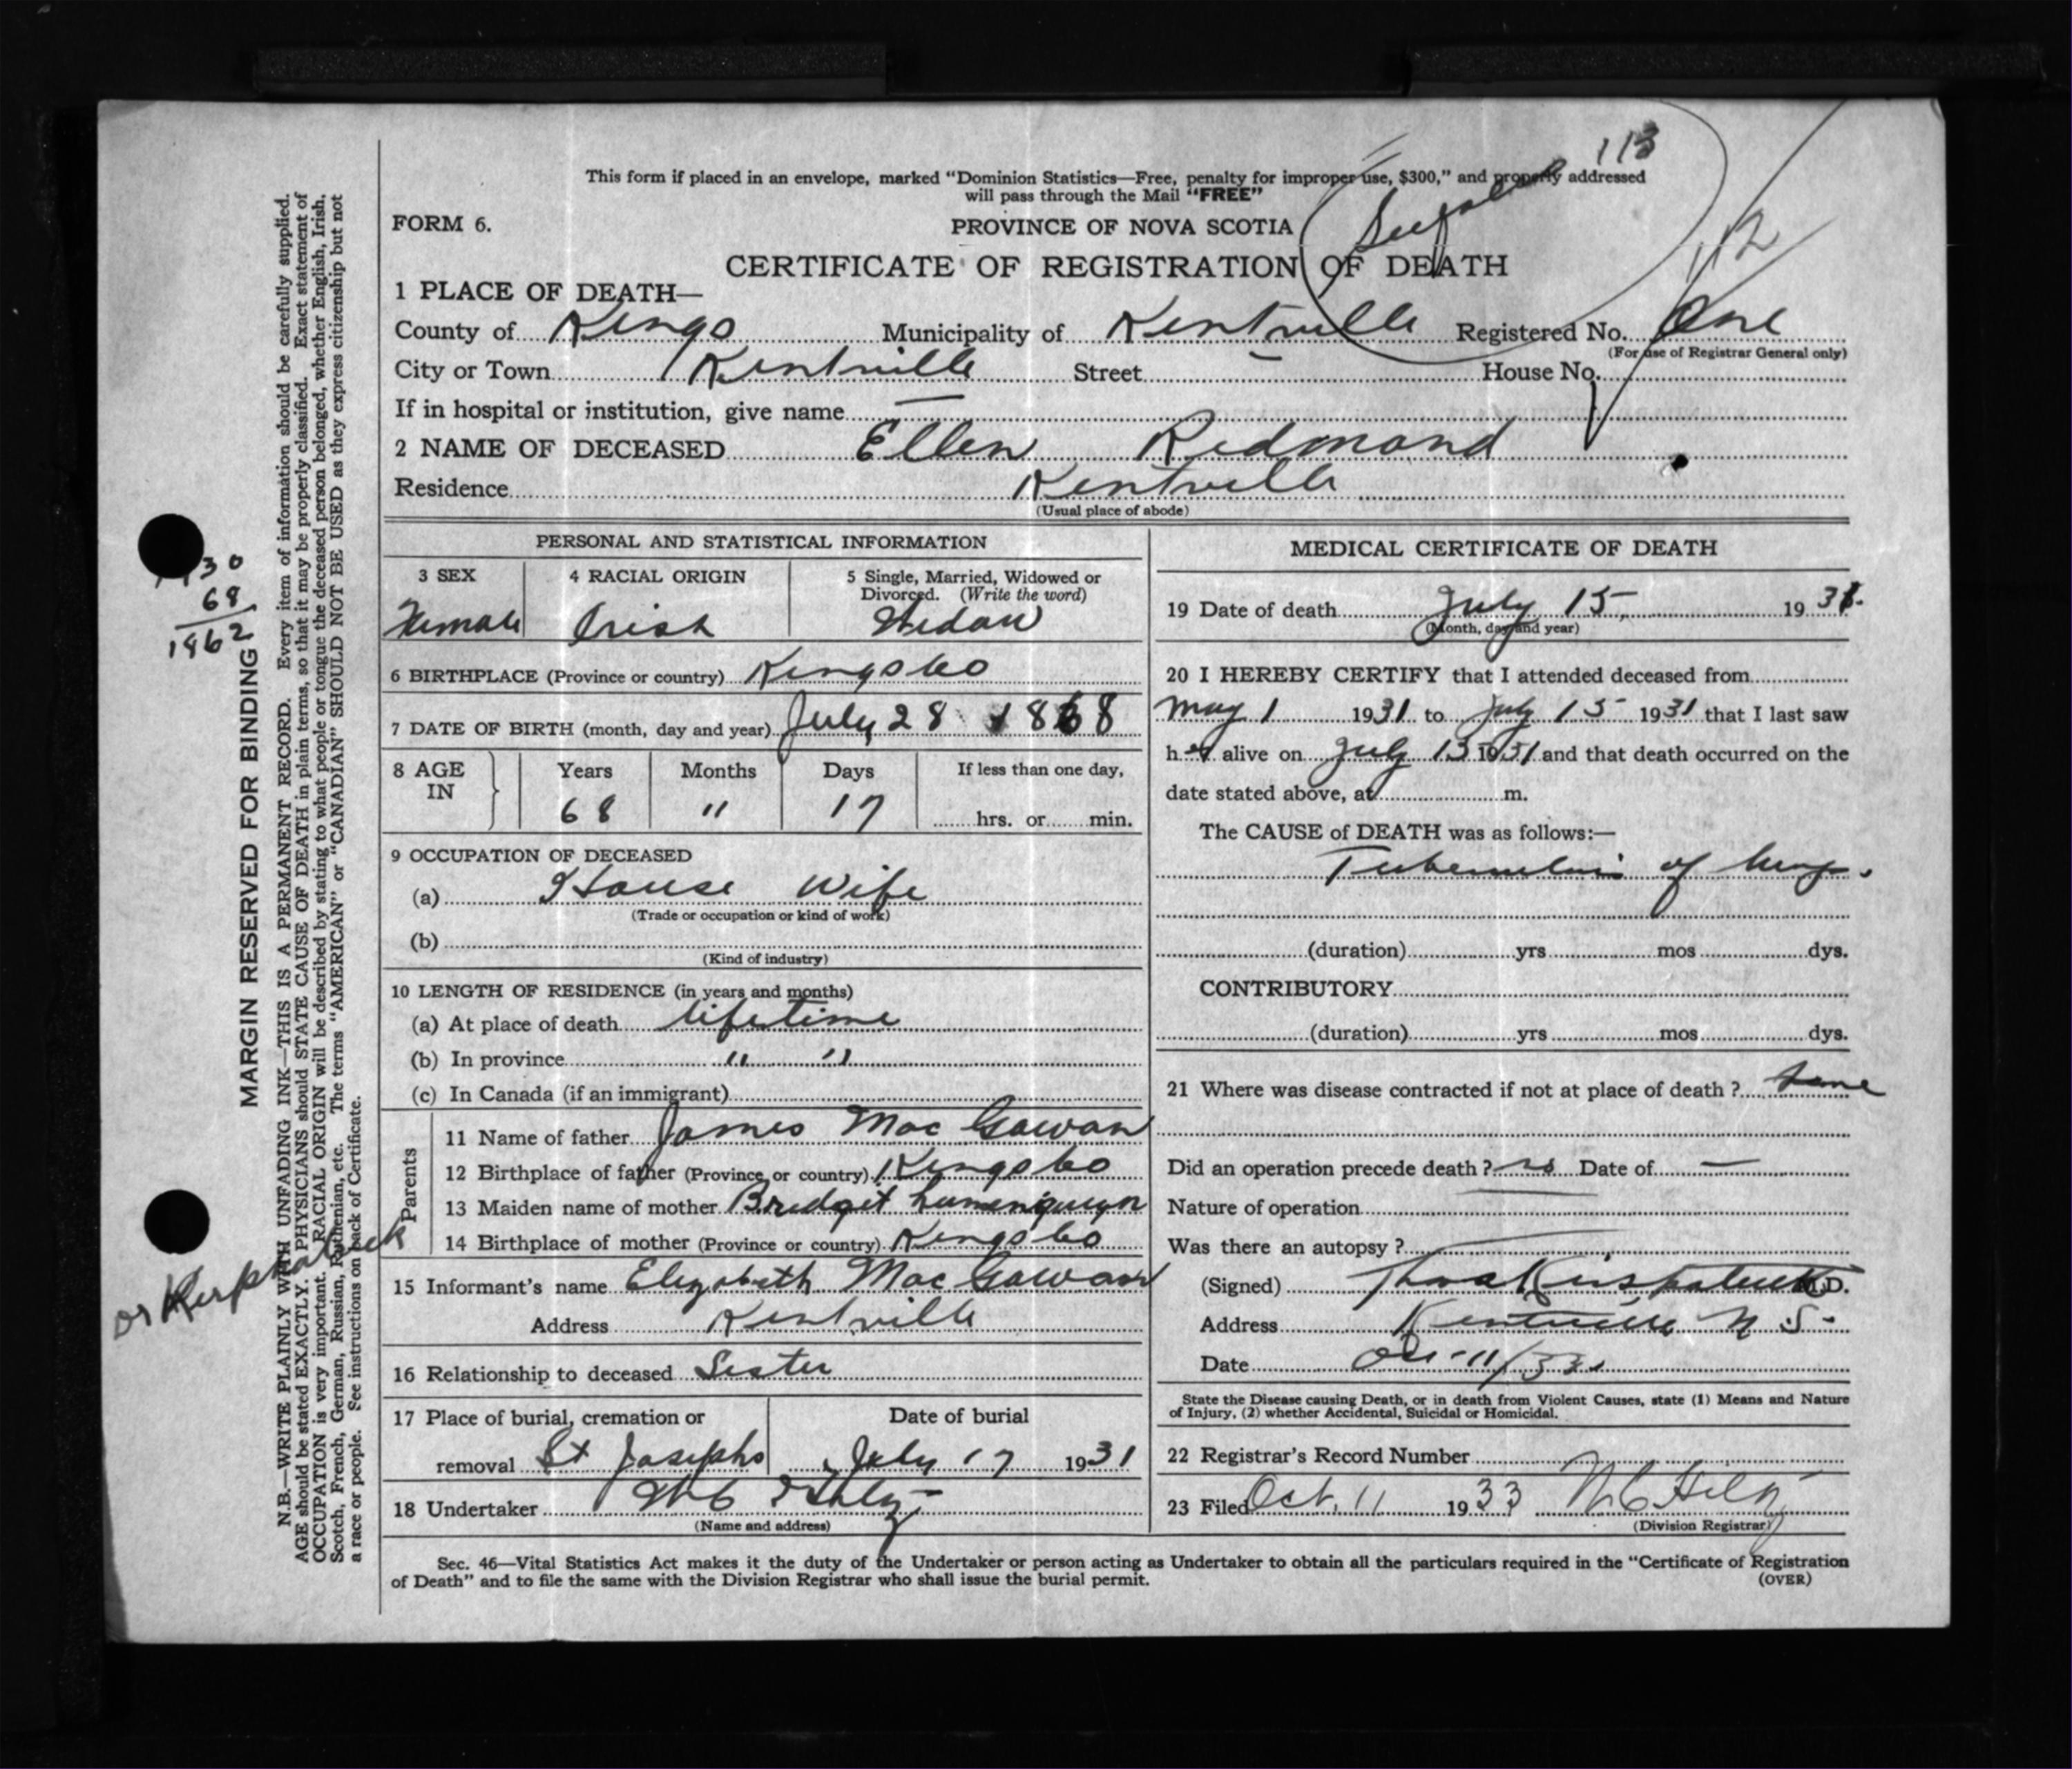 113
This form if placed in an envelope, marked "Dominion Statistics—Free, penalty for improper use, $300," and properly addressed
will pass through the Mail "FREE"
FORM 6.
PROVINCE OF NOVA SCOTIA
112
CERTIFICATE OF REGISTRATION OF DEATH
1 PLACE OF DEATH—
County of Kings Municipality of Kentville Registered No. One
(For use of Registrar General only)
City or Town Kentville Street — House No.
If in hospital or institution, give name —
2 NAME OF DECEASED Ellen Redmond
Residence Kentville
(Usual place of abode)
PERSONAL AND STATISTICAL INFORMATION
3 SEX 4 RACIAL ORIGIN 5 Single, Married, Widowed or
Divorced. (Write the word)
Female Irish Widow
6 BIRTHPLACE (Province or country) Kings Co
7 DATE OF BIRTH (month, day and year) July 28 1868
8 AGE IN Years Months Days If less than one day,
68 " 17 hrs. or min.
9 OCCUPATION OF DECEASED
(a) House Wife
(Trade or occupation or kind of work)
(b)
(Kind of industry)
10 LENGTH OF RESIDENCE (in years and months)
(a) At place of death lifetime
(b) In province " "
(c) In Canada (if an immigrant)
Parents
11 Name of father James Mac Gowan
12 Birthplace of father (Province or country) Kings Co
13 Maiden name of mother Bridget
14 Birthplace of mother (Province or country) Kings Co
15 Informant's name Elizabeth Mac Gowan
Address Kentville
16 Relationship to deceased Sister
17 Place of burial, cremation or Date of burial
removal St Josephs July 17 1931
18 Undertaker W C
(Name and address)
MEDICAL CERTIFICATE OF DEATH
19 Date of death July 15, 1931.
(Month, day and year)
20 I HEREBY CERTIFY that I attended deceased from
May 1 1931 to July 15 1931 that I last saw
her alive on July 13 1931 and that death occurred on the
date stated above, at m.
The CAUSE of DEATH was as follows:—
Tuberculosis of lungs.
(duration) yrs mos dys.
CONTRIBUTORY
(duration) yrs mos dys.
21 Where was disease contracted if not at place of death? Same
Did an operation precede death? no Date of —
Nature of operation
Was there an autopsy?
(Signed) Kirkpatrick M.D.
Address Kentville N.S.
Date Oct 11/33
State the Disease causing Death, or in death from Violent Causes, state (1) Means and Nature
of Injury, (2) whether Accidental, Suicidal or Homicidal.
22 Registrar's Record Number
23 Filed Oct. 11 1933
(Division Registrar)
Sec. 46—Vital Statistics Act makes it the duty of the Undertaker or person acting as Undertaker to obtain all the particulars required in the "Certificate of Registration
of Death" and to file the same with the Division Registrar who shall issue the burial permit. (OVER)
68
1862
MARGIN RESERVED FOR BINDING
N.B.—WRITE PLAINLY WITH UNFADING INK—THIS IS A PERMANENT RECORD. Every item of information should be carefully supplied.
AGE should be stated EXACTLY. PHYSICIANS should STATE CAUSE OF DEATH in plain terms, so that it may be properly classified. Exact statement of
OCCUPATION is very important. RACIAL ORIGIN will be described by stating to what people or tongue the deceased person belonged, whether English, Irish,
Scotch, French, German, Russian, Ruthenian, etc. The terms "AMERICAN" or "CANADIAN" SHOULD NOT BE USED as they express citizenship but not
a race or people. See instructions on back of Certificate.